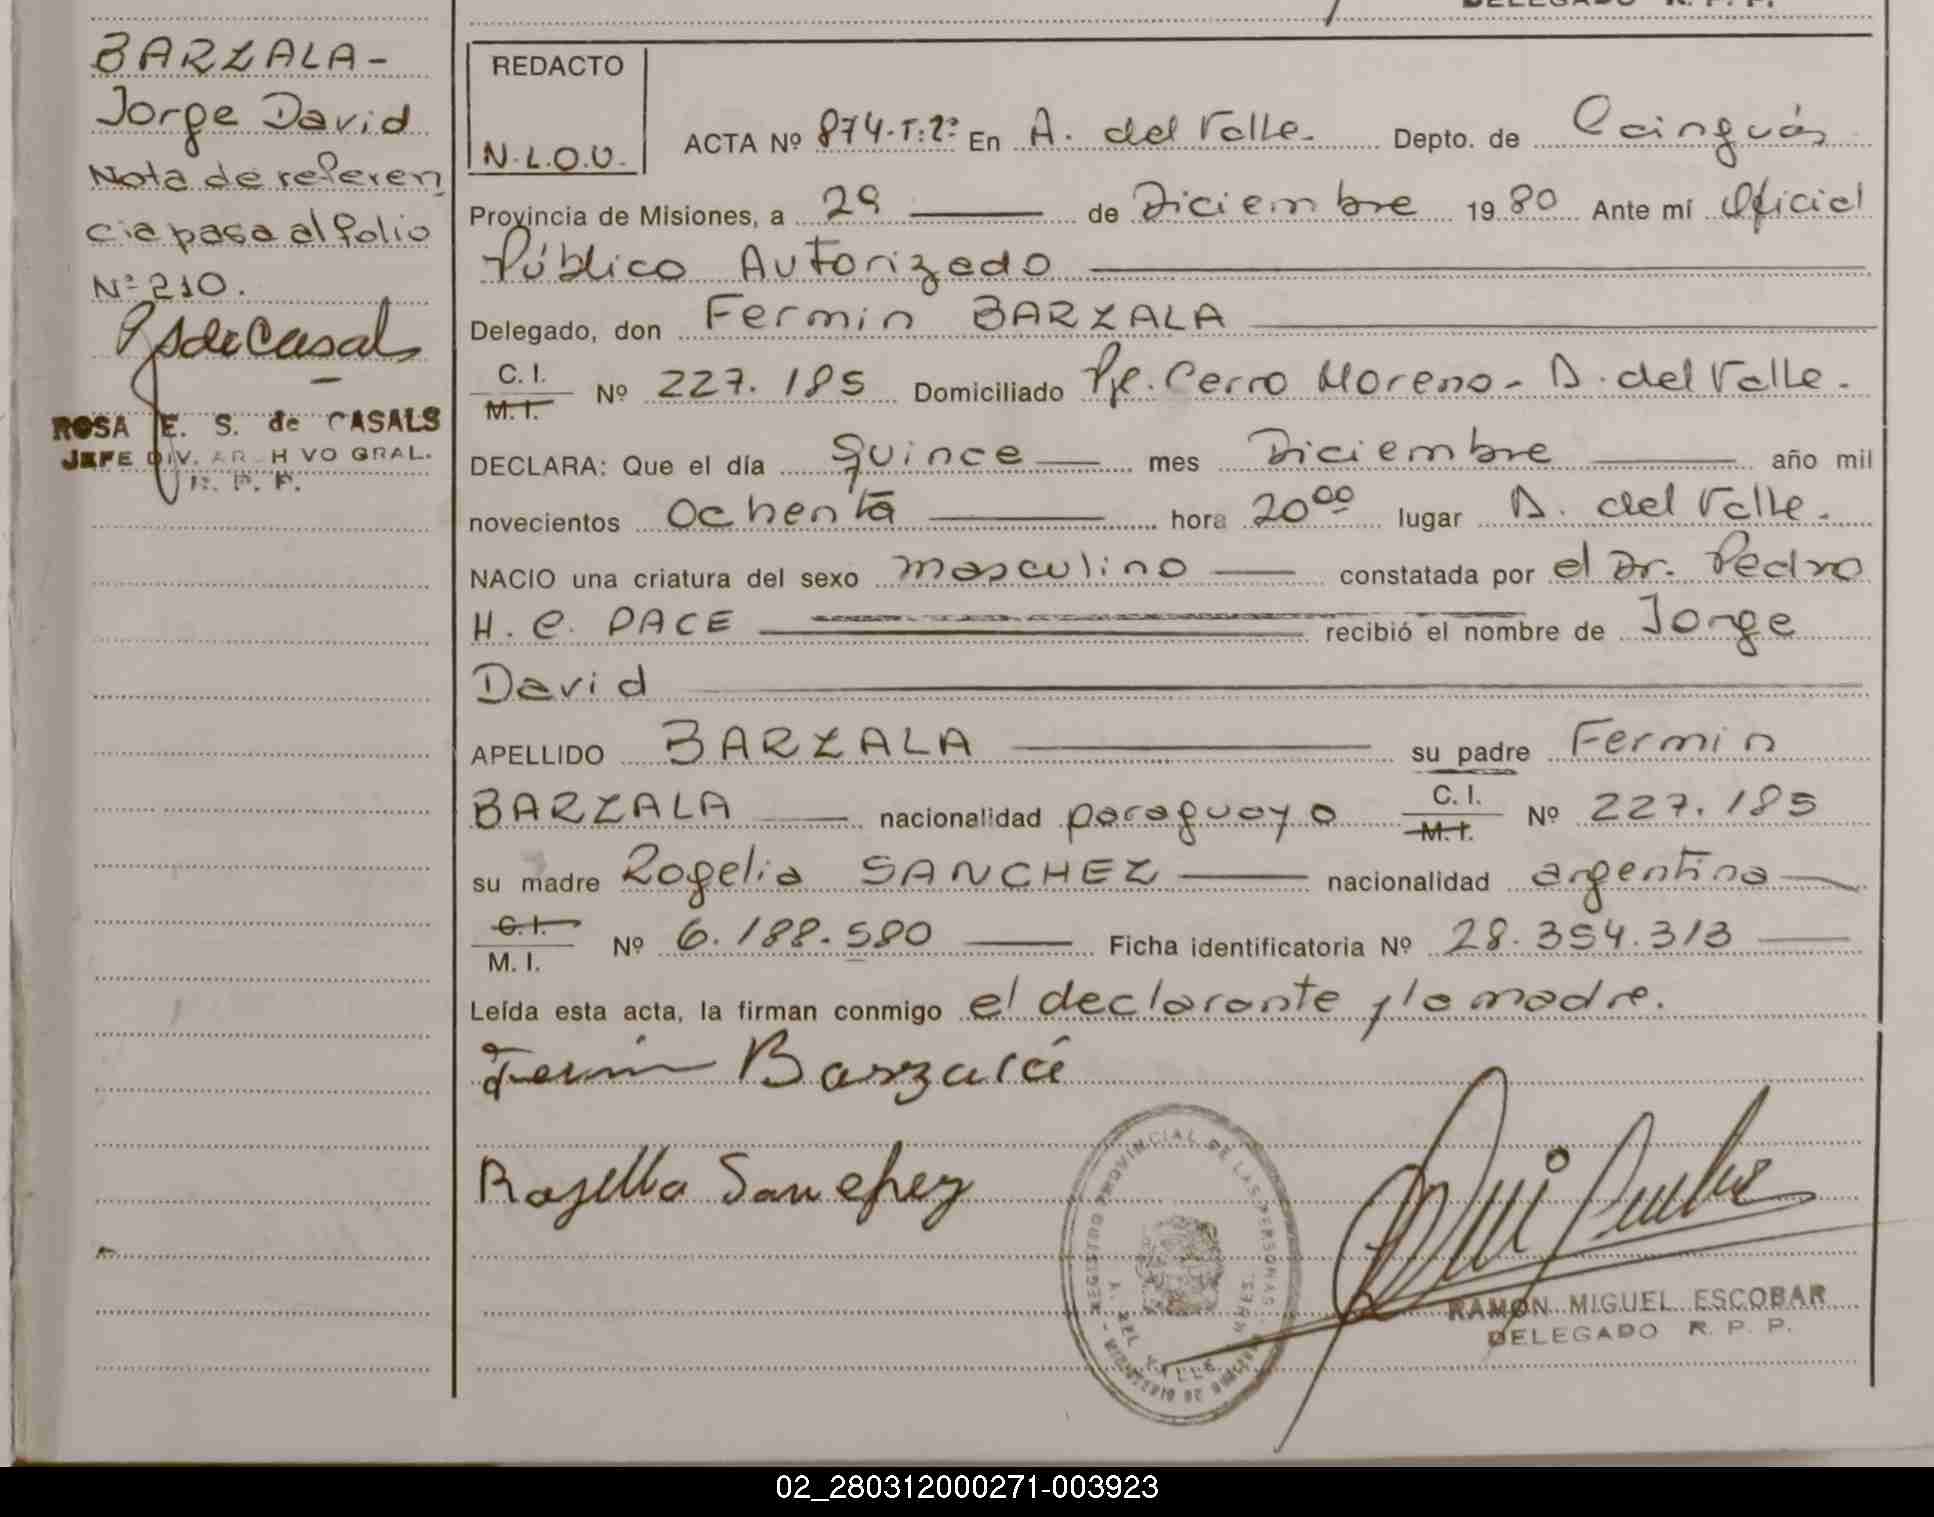 BARZALA-
Jorge David
Nota de referen
cia pasa al folio
Nº 210.
ROSA E. S. de CASALS
JEFE DIV. ARCHIVO GRAL.
R. P. P.
DELEGADO R. P. P.
REDACTO
N.L.O.U.
ACTA Nº 874.T:2º En A. del Valle. Depto. de Cainguás
Provincia de Misiones, a 29 de Diciembre 1980 Ante mí Oficial
Público Autorizado
Delegado, don Fermin BARZALA
C. I.
M. I. Nº 227.185 Domiciliado Pje. Cerro Moreno - A. del Valle.
DECLARA: Que el día quince mes Diciembre año mil
novecientos ochenta hora 20 00 lugar A. del Valle.
NACIO una criatura del sexo masculino constatada por el Dr. Pedro
H. C. PACE recibió el nombre de Jorge
David
APELLIDO BARZALA su padre Fermin
BARZALA nacionalidad paraguayo C. I. M. I. Nº 227.185
su madre Rogelia SANCHEZ nacionalidad argentina
C. I.
M. I. Nº 6.188.580 Ficha identificatoria Nº 28.354.313
Leída esta acta, la firman conmigo el declarante y la madre.
Fermin Barzala
Sanchez
REGISTRO PROVINCIAL DE LAS PERSONAS
A. DEL VALLE
RAMON MIGUEL ESCOBAR
DELEGADO R. P. P.
02_280312000271-003923